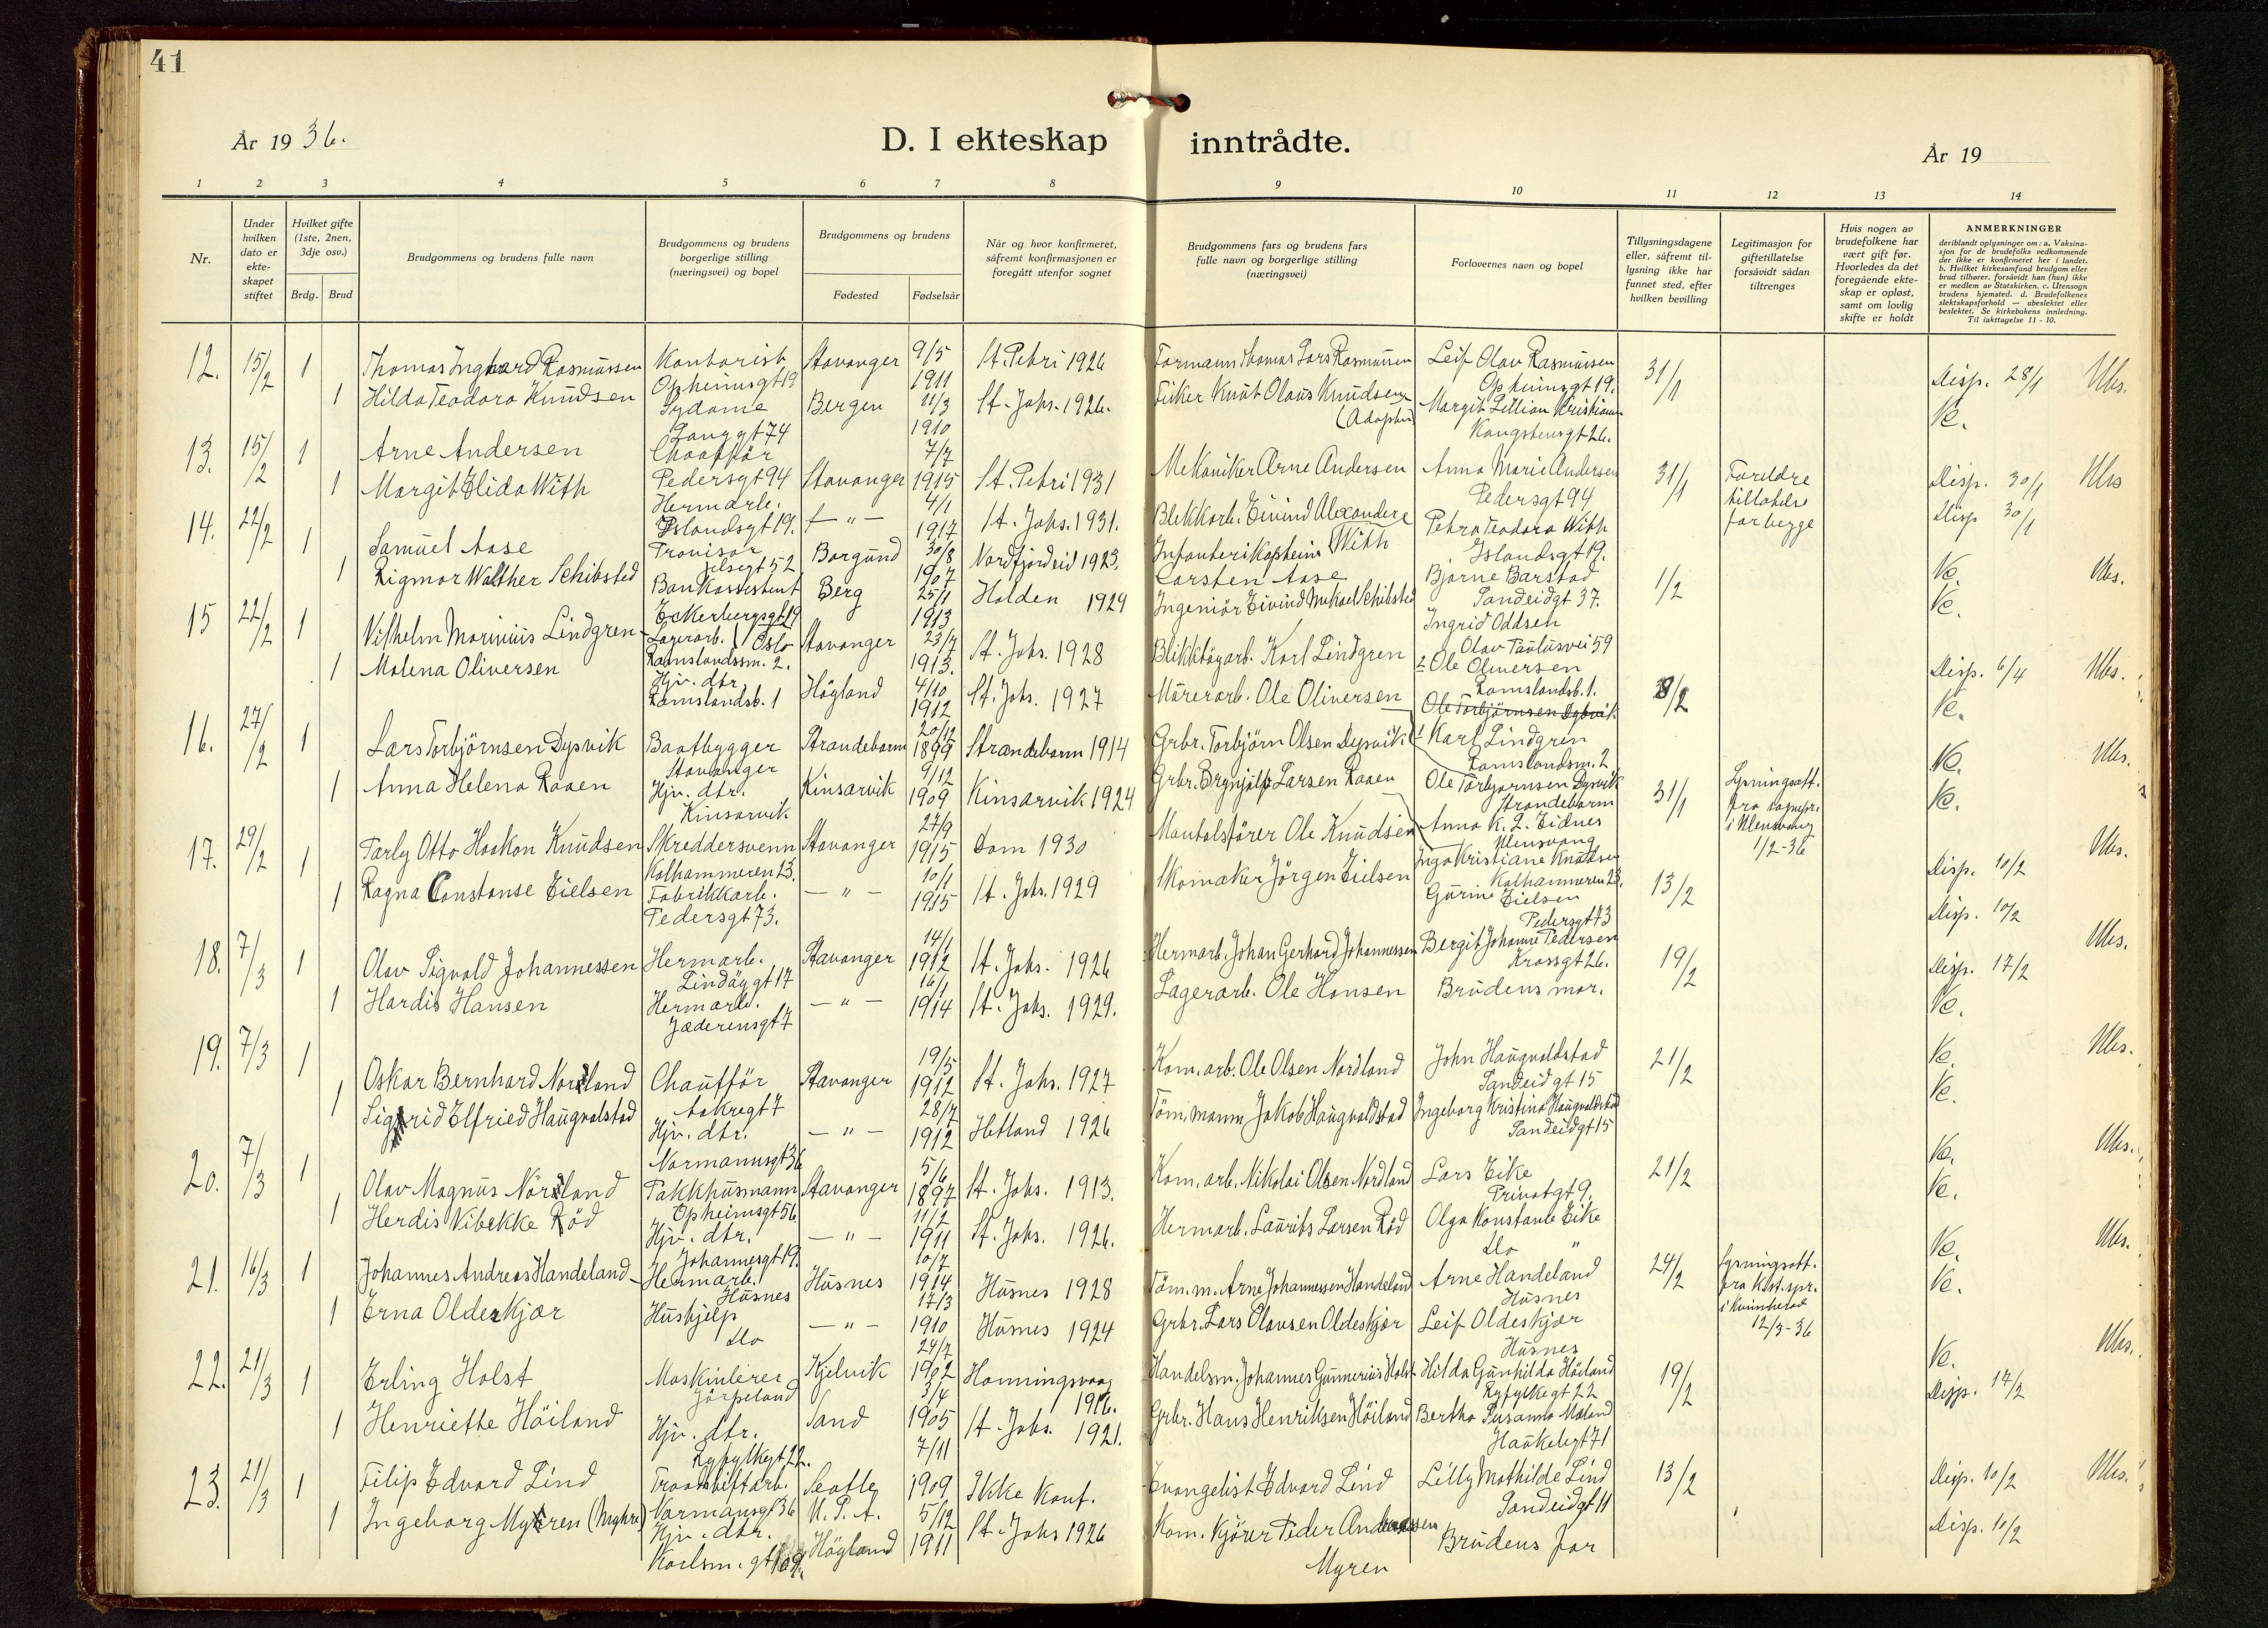 41
År 1936.
D. I ekteskap inntrådte.
År 19
1 2 3 4 5 6 7 8 9 10 11 12 13 14
Nr.
Under hvilken dato er ekteskapet stiftet
Hvilket gifte (1ste, 2nen, 3dje osv.)
Brdg. Brud
Brudgommens og brudens fulle navn
Brudgommens og brudens borgerlige stilling (næringsvei) og bopel
Brudgommens og brudens
Fødested Fødselsår
Når og hvor konfirmeret, såfremt konfirmasjonen er foregått utenfor sognet
Brudgommens fars og brudens fars fulle navn og borgerlige stilling (næringsvei)
Forlovernes navn og bopel
Tillysningsdagene eller, såfremt tillysning ikke har funnet sted, efter hvilken bevilling
Legitimasjon for giftetillatelse forsåvidt sådan tiltrenges
Hvis nogen av brudefolkene har vært gift før. Hvorledes da det foregående ekteskap er opløst, samt om lovlig skifte er holdt
ANMERKNINGER
deriblandt oplysninger om: a. Vaksinasjon for de brudefolks vedkommende der ikke er konfirmeret her i landet. b. Hvilket kirkesamfund brudgom eller brud tilhører, forsåvidt han (hun) ikke er medlem av Statskirken. c. Utensogn brudens hjemsted. d. Brudefolkenes slektskapsforhold — ubeslektet eller beslektet. Se kirkebokens innledning. Til iakttagelse 11 - 10.
12. 15/2 1 Thomas Ingvard Rasmussen Kontorist Opheimsgt 19 Stavanger 9/5 1911 St. Petri 1926 Formann Thomas Lars Rasmussen Leif Olav Rasmussen Opheimsgt 19. 31/1 Disp. 28/1 Ubs.
1 Hilda Teodora Knudsen Sydame Langgt 74 Bergen 11/3 1910 St. Johs. 1926. Fisker Knut Olaus Knudsen (Adoptiv) Margit Lillian Kristiansen Kongsteinsgt 26. Ve.
13. 15/2 1 Arne Andersen Chauffør Pedersgt 94 Stavanger 7/7 1915 St. Petri 1931 Mekaniker Arne Andersen Anna Marie Andersen Pedersgt 94 31/1 Foreldre tillatelse for begge Disp. 30/1 Ubs
1 Margit Elida With Hermarb. Islandsgt 19. — " — 4/1 1917 St. Johs. 1931. Blekkarb. Eivind Alexander With Petra Teodora With Islandsgt 19. Disp 30/1
14. 22/2 1 Samuel Aase Provisor 52 Borgund 30/8 1907 Nordfjordeid 1923. Infanterikaptein Carsten Aase Bjarne Barstad Sandeidgt 37. 1/2 Ve. Ubs.
1 Rigmor Walther Schibsted Bankassistent Eckerbergsgt 19 Oslo Berg 25/1 1913 Halden 1929 Ingeniør Eivind Mikael Schibsted Ingrid Oddsen Olav Paulusvei 59 Ve.
15 22/2 1 Vilhelm Marinius Lindgren Lagerarb. Ramslandssm. 2. Stavanger 23/7 1913. St. Johs. 1928 Blikktøyarb. Karl Lindgren 2 Ole Oliversen Ramslandsb. 1. 8/2 Disp. 6/4 Ubs.
1 Malena Oliversen Hjv. dtr. Ramslandsb. 1 Høyland 4/10 1912 St. Johs. 1927 Murerarb. Ole Oliversen Ole Torbjørnsen Dysvik 1 Karl Lindgren Ramslandsm. 2 Ve.
16. 27/2 1 Lars Torbjørnsen Dysvik Baatbygger Stavanger Strandebarm 20/12 1899 Strandebarm 1914 Grbr. Torbjørn Olsen Dysvik Ole Torbjørnsen Dysvik Strandebarm 31/1 Lysningsatt. fra sognepr. i Ullensvang 1/2-36 Ve. Ubs.
1 Anna Helena Raaen Hjv. dtr. Kinsarvik Kinsarvik 9/12 1909 Kinsarvik 1924 Grbr. Brynjulf Larsen Raaen Anna K. L. Eidnes Ullensvang Ve.
17. 29/2 1 Tarly Otto Haakon Knudsen Skreddersvenn Kalhammeren 23. Stavanger 27/9 1915 Dom 1930 Mantalsfører Ole Knudsen Inga Kristiane Knudsen Kalhammeren 23. 13/2 Disp. 10/2 Ubs.
1 Ragna Constanse Eielsen Fabrikkarb. Pedersgt 73. — " — 10/1 1915 St. Johs. 1929 Skomaker Jørgen Eielsen Gurine Eielsen Pedersgt 73 Disp. 10/2
18. 7/3 1 Olav Sigvald Johannessen Hermarb. Lindøygt 17 Stavanger 14/1 1912 St. Johs. 1926 Hermarb. Johan Gerhard Johannessen Bergit Johanne Pedersen Krossgt 26. 19/2 Disp. 17/2 Ubs.
1 Hardis Hansen Hermarb. Jæderensgt 7 — " — 16/1 1914 St. Johs. 1929. Lagerarb. Ole Hansen Brudens mor. Ve.
19. 7/3 1 Oskar Bernhard Nordland Chauffør Aakregt 7 Stavanger 19/5 1912 St. Johs. 1927 Kom. arb. Ole Olsen Nordland John Haugvaldstad Sandeidgt 15 21/2 Ve. Ubs.
1 Sigrid Elfried Haugvalstad Hjv. dtr. Normannsgt 36 — " — 28/7 1912 Hetland 1926 Tømmermann Jakob Haugvaldstad Ingeborg Kristina Haugvaldstad Sandeidgt 15 Ve.
20. 7/3 1 Olav Magnus Nordland Pakkhusmann Opheimsgt 56 Stavanger 5/6 1897 St. Johs. 1913. Kom. arb. Nikolai Olsen Nordland Lars Eike Privatgt 9. 21/2 Ve. Ubs.
1 Herdis Vibekke Rød Hjv. dtr. Johannesgt 19. — " — 11/2 1911 St. Johs. 1926. Hermarb. Laurits Larsen Rød Olga Konstanse Eike do " Ve.
21. 16/3 1 Johannes Andreas Handeland Hermarb. Husnes Husnes 10/7 1914 Husnes 1928 Tøm.m. Arne Johannessen Handeland Arne Handeland Husnes 24/2 Lysningsatt. fra Kst. spr. i Kvinnherad 12/3-36 Ve. Ubs.
1 Erna Oldeskjær Hushjelp do — " — 17/3 1910 Husnes 1924 Grbr. Lars Olausen Oldeskjær Leif Oldeskjær Husnes Ve.
22. 21/3 1 Erling Holst Maskinlærer Jørpeland Kjelvik 24/7 1902 Honningsvaag 1916. Handelsm. Johannes Gunnerius Holst Hilda Gunhilda Høiland Ryfylkegt 22 19/2 Ve. Ubs.
1 Henriette Høiland Hjv. dtr. Ryfylkgt 22. Sand 3/4 1905 St. Johs. 1921. Grbr. Hans Henriksen Høiland Bertha Susanna Maland Haukeligt 71 Disp. 14/2
23. 21/3 1 Filip Edvard Lind Normansgt 36 Seattle U. S. A. 7/11 1909 Ikke konf. Evangelist Edvard Lind Lilly Mathilde Lind Sandeidgt 11 13/2 Disp. 10/2 Ubs.
1 Ingeborg Myren (Myhre) Hjv. dtr. Karlsm. gt 109. Høyland 5/12 1911 St. Johs 1926 Kom. kjører Peder Andreassen Myren Brudens far Disp. 10/2